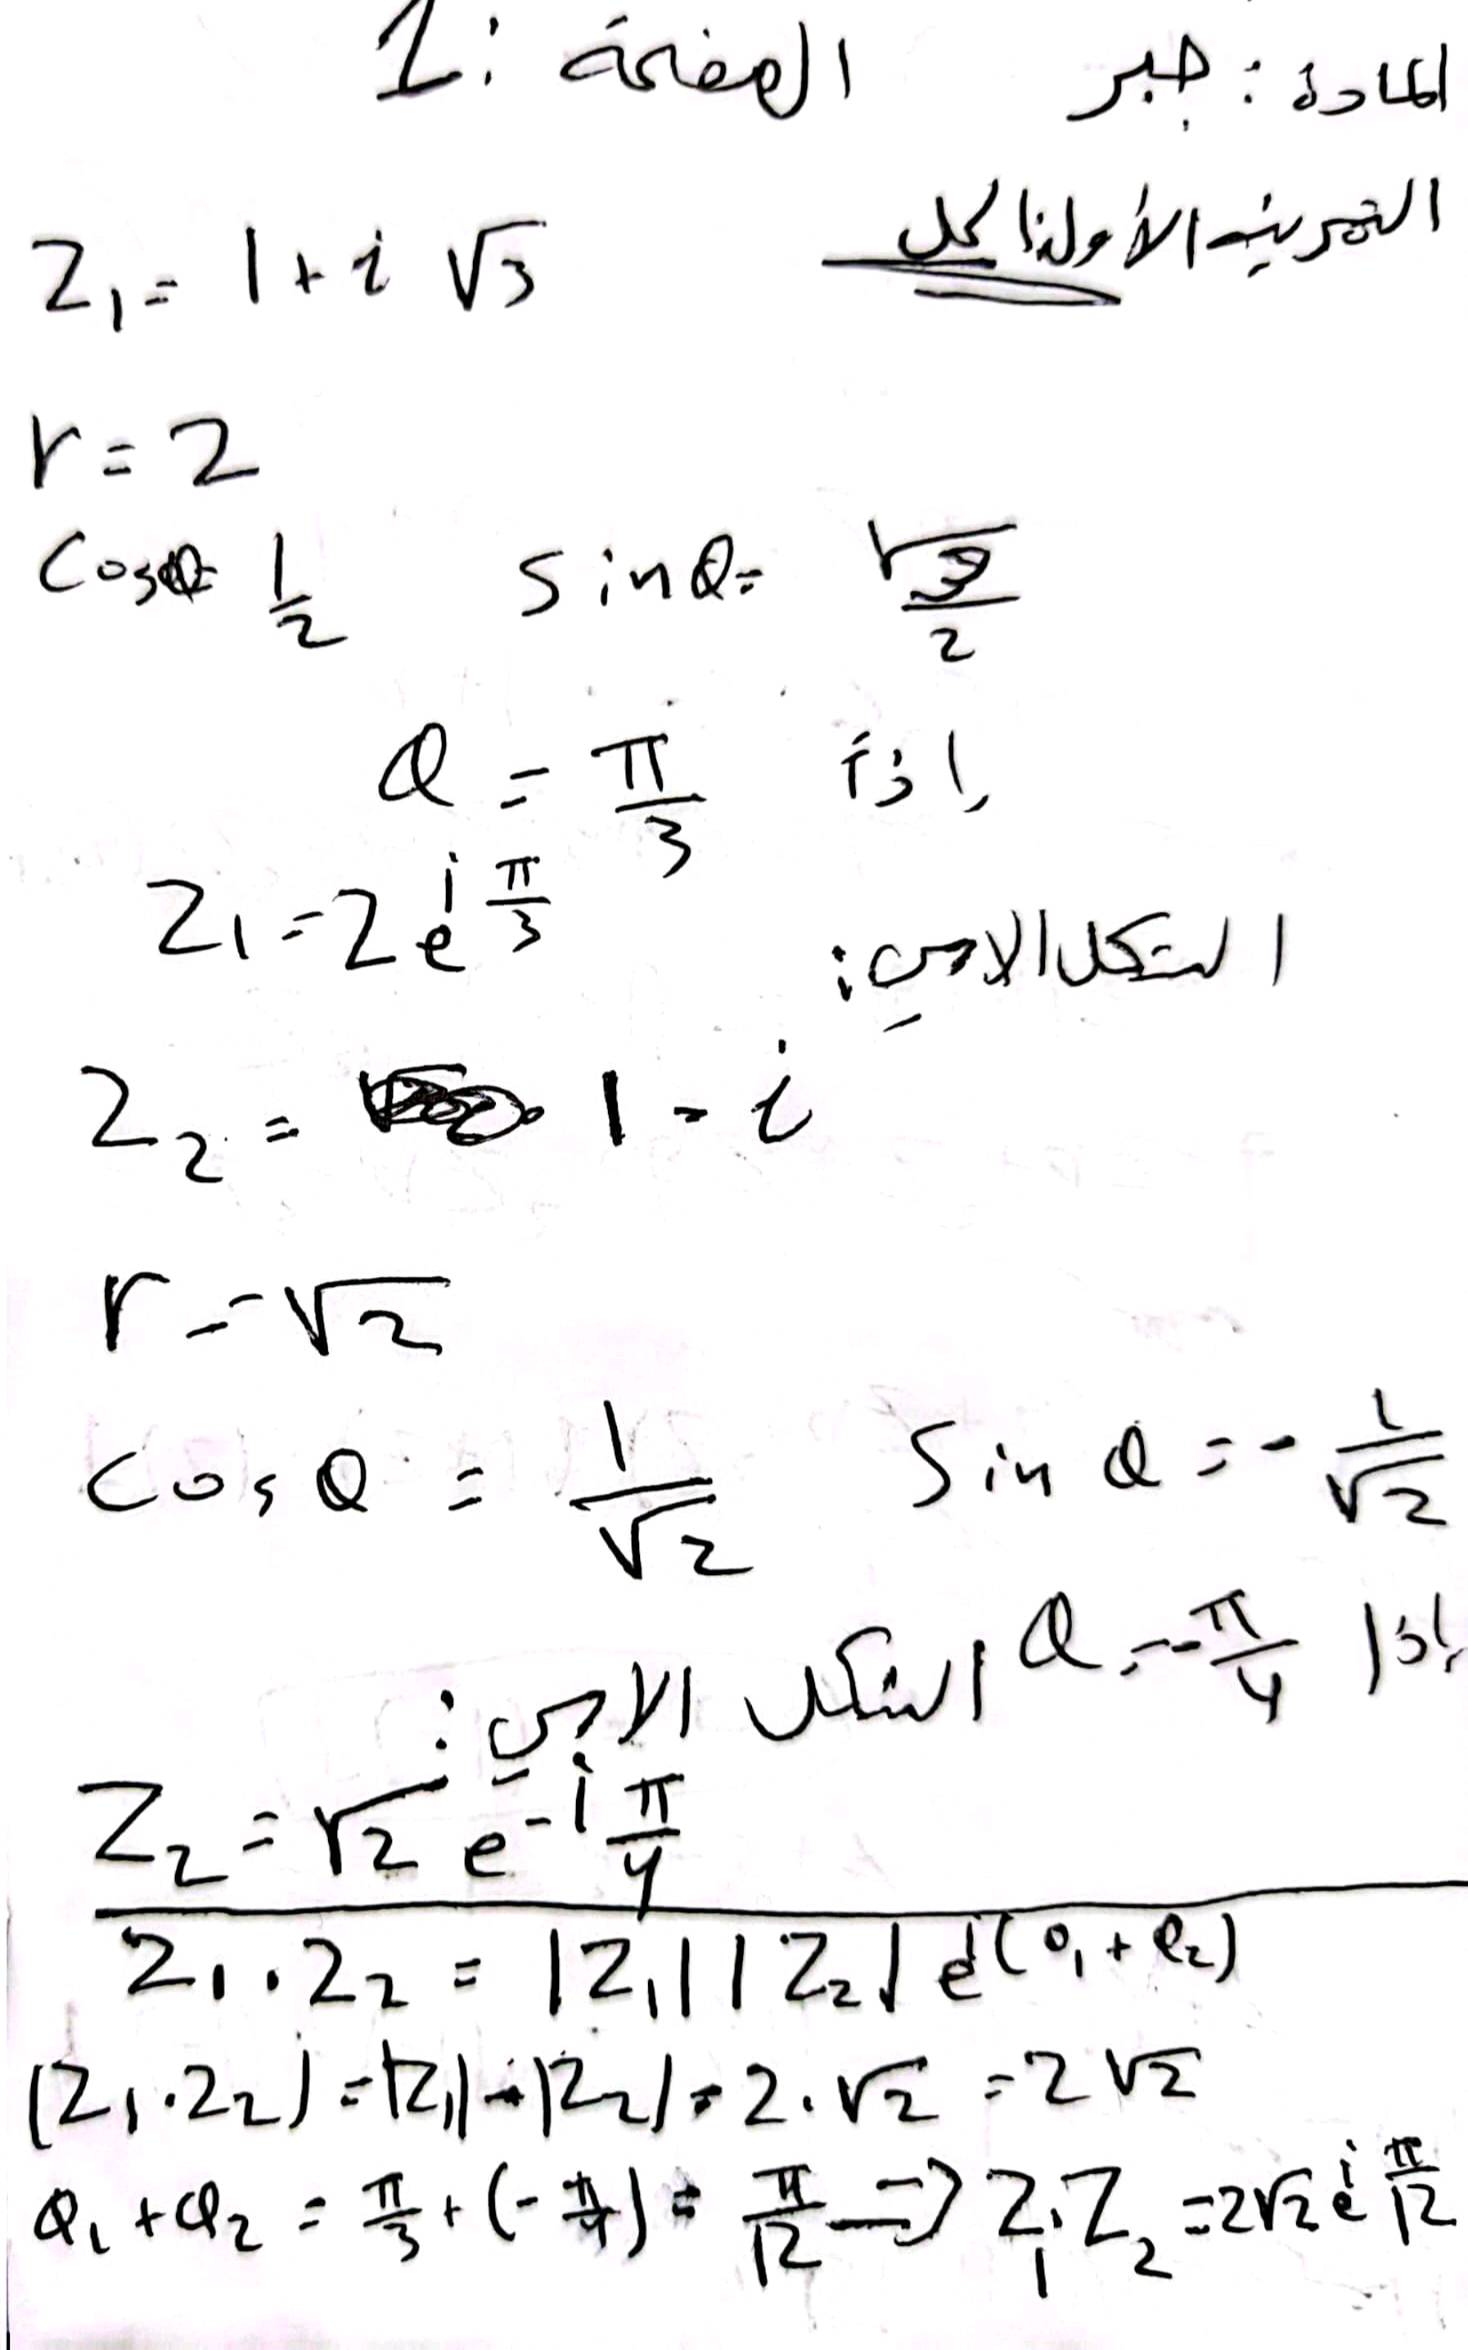 المادة: جبر الصفحة: 1
التمرين الأول: كل
Z₁ = 1 + i √3
r = 2
cosθ = 1/2 sinθ = √3/2
θ = π/3 إذاً
Z₁ = 2 e^(i π/3) الشكل الاسي:
Z₂ = 1 - i
r = √2
cosθ = 1/√2 sinθ = - 1/√2
إذا θ = -π/4 الشكل الاسي:
Z₂ = √2 e^(-i π/4)
Z₁ . Z₂ = |Z₁| |Z₂| e^(i(θ₁ + θ₂))
|Z₁ . Z₂| = |Z₁| . |Z₂| = 2 . √2 = 2√2
θ₁ + θ₂ = π/3 + (-π/4) = π/12 ⇒ Z₁.Z₂ = 2√2 e^(i π/12)